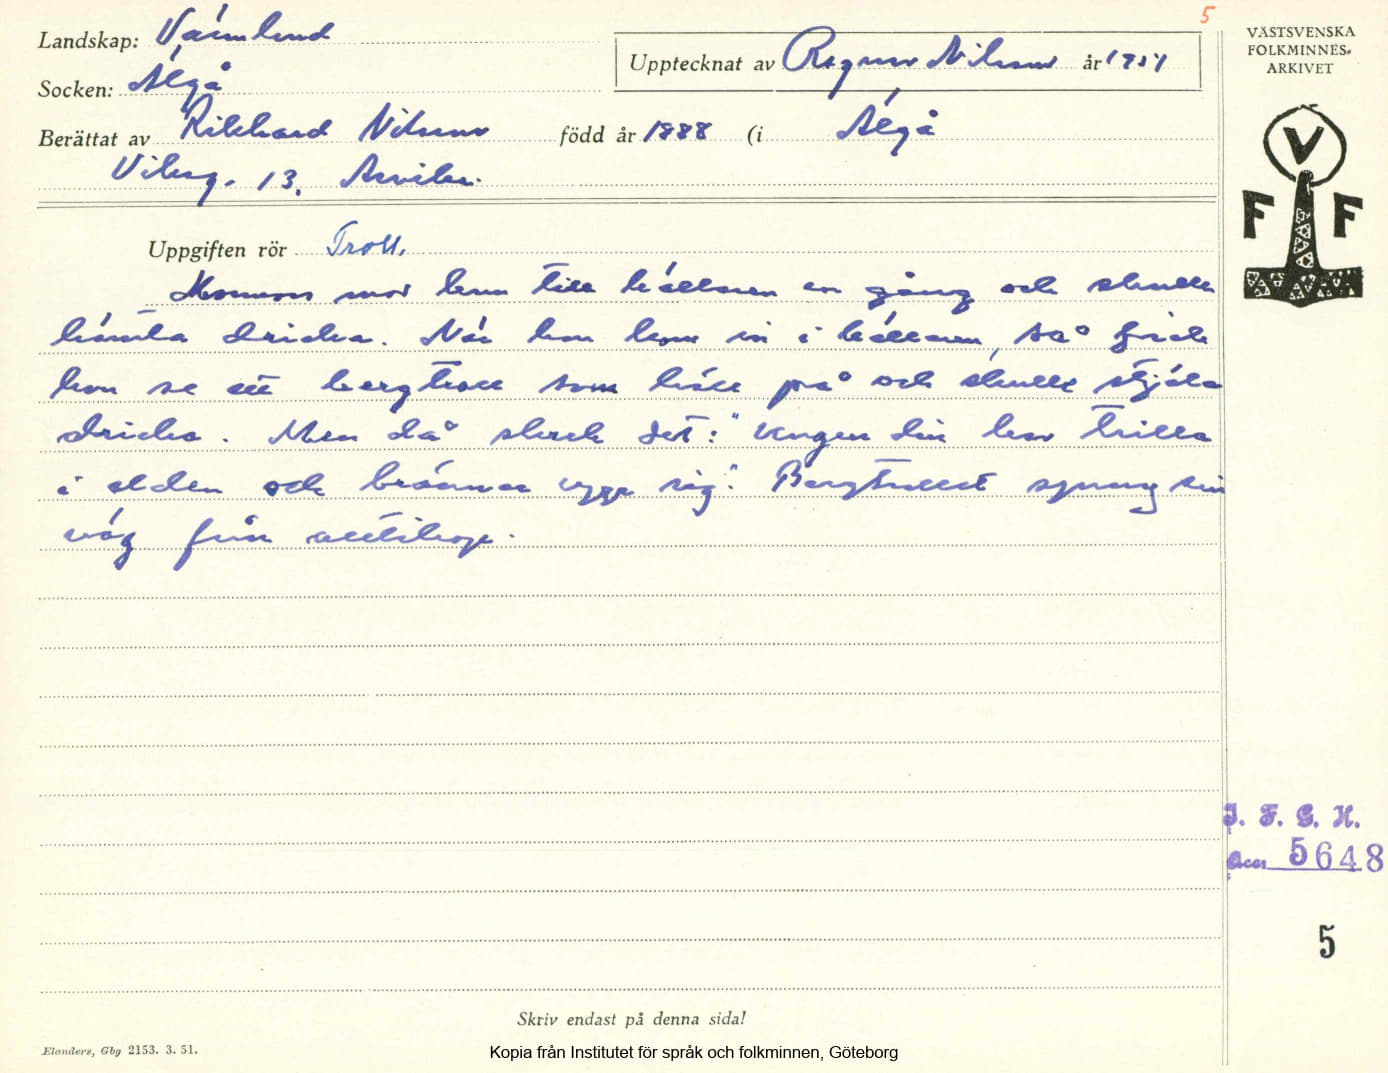 5
Landskap: Värmland
Socken: Älgå
Upptecknat av Ragnar Nilsson år 1951
Berättat av Rikhard Nilsson född år 1888 (i Älgå
13, Arvika.
VÄSTSVENSKA
FOLKMINNES-
ARKIVET
V
F F
Uppgiften rör Troll.
Mormors mor kom till källaren en gång och skulle
hämta dricka. När hon kom in i källaren, så fick
hon se ett bergtroll som höll på och skulle stjäla
dricka. Men då skrek det: "Ungen din har trilla
i elden och bränner sig". Bergtrollet sprang sin
väg från alltihop.
I. F. G. H.
Acc. 5648
5
Skriv endast på denna sida!
Elanders, Gbg 2153. 3. 51.
Kopia från Institutet för språk och folkminnen, Göteborg